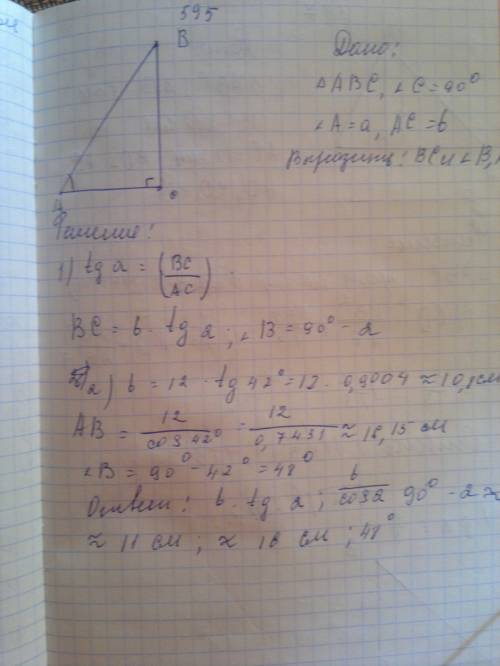 595
B
A
C
Дано:
△ABC, ∠C=90°
∠A=a, AC=b
Выразить: BC и ∠B, A
Решение:
1) tg a = (BC/AC)
BC = b · tg a; ∠B = 90° - a
2) b = 12 · tg 42° = 12 · 0,9004 ≈ 10,8 см
AB = 12/cos 42° = 12/0,7431 ≈ 16,15 см
∠B = 90° - 42° = 48°
Ответ: b · tg a; b/cos a 90° - a ≈
≈ 11 см; ≈ 16 см; 48°